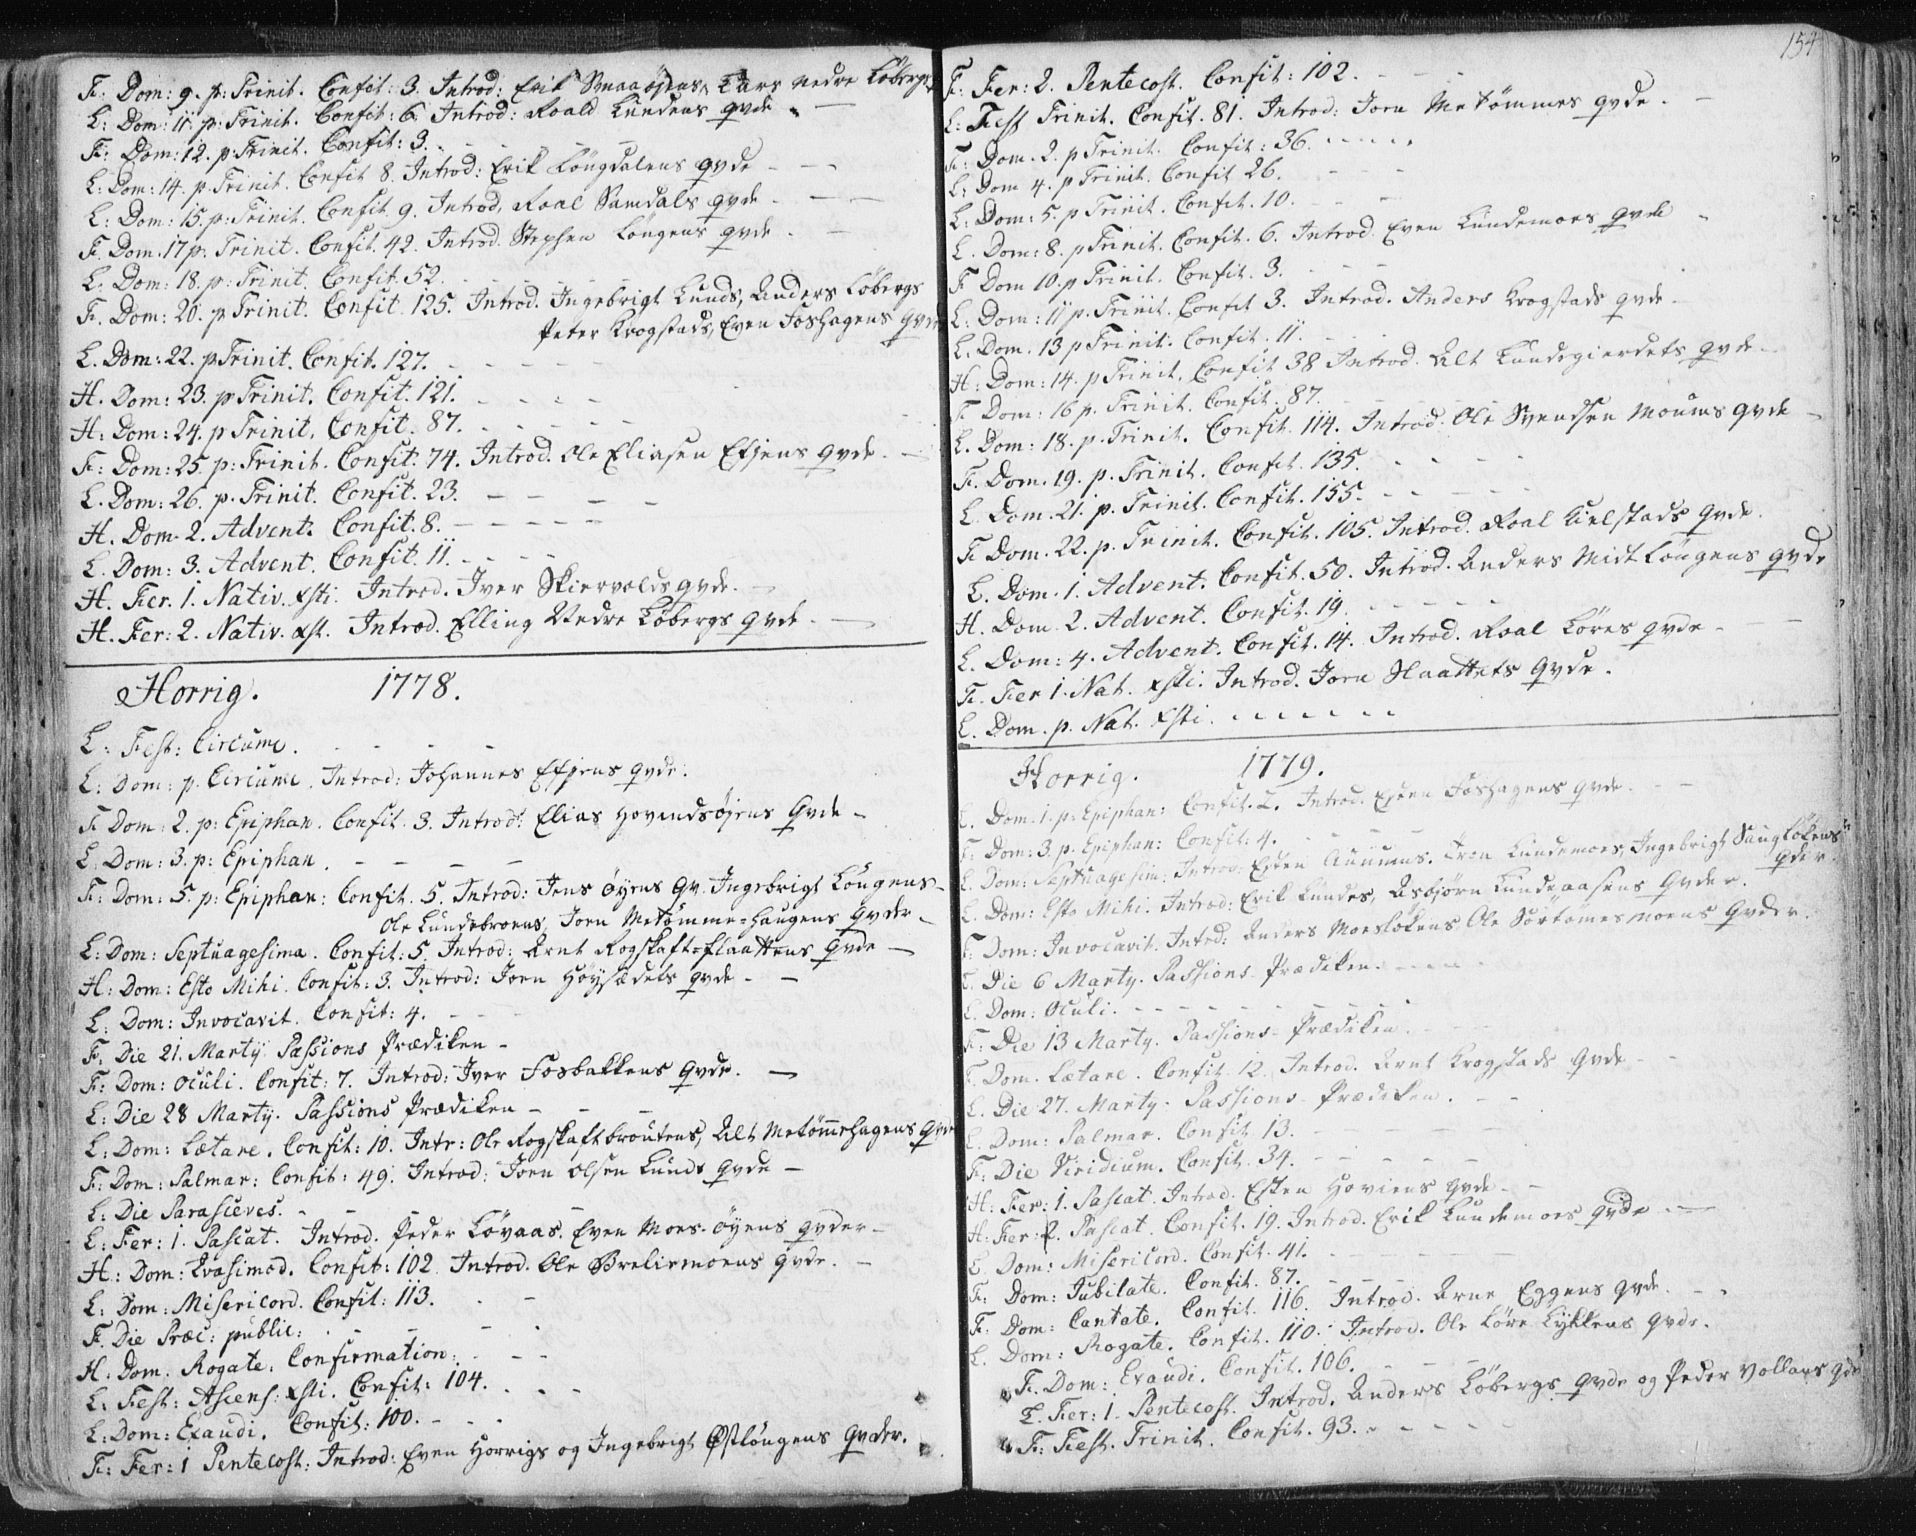 F. Dom: 9. p: Trinit. Confit: 3. Introd: Erik Smaaøyens, Lars Nedre Løbergs
L: Dom: 11. p: Trinit. Confit: 6. Introd: Roald Lundens qvde. —
F: Dom: 12. p: Trinit. Confit: 3.
L: Dom: 14. p. Trinit. Confit 8. Introd: Erik Løngdalens qvde
L: Dom: 15. p: Trinit. Confit. 9. Introd. Roal Samdals qvde
F. Dom. 17 p: Trinit. Confit. 42. Introd. Stephen Løngens qvde
L. Dom: 18. p: Trinit. Confit. 52.
F. Dom: 20. p Trinit. Confit. 125. Introd. Ingebrigt Lunds, Anders Løbergs
Peter Krogstads, Even Foshagens qvder
L. Dom: 22. p Trinit. Confit. 127.
H. Dom: 23. p Trinit. Confit. 121.
H: Dom: 24. p Trinit. Confit. 87.
F: Dom: 25. p: Trinit. Confit. 74. Introd. Ole Eliasen Efjens qvde.
L. Dom: 26. p. Trinit. Confit. 23.
H. Dom. 2. Advent. Confit. 8.
L. Dom: 3. Advent. Confit. 11.
H. Fer. 1. Nativ. xsti. Introd. Iver Skiervolds qvde.
H. Fer: 2. Nativ. xst. Introd. Elling Nedre Løbergs qvde.
Horrig. 1778.
L: Fest: Circumc.
L: Dom: p. Circumc. Introd: Johannes Efjens qvde.
F Dom: 2. p: Epiphan. Confit. 3. Introd: Elias Hovendsøjens Qvde
L: Dom: 3. p: Epiphan.
F: Dom: 5. p: Epiphan: Confit. 5. Introd: Jens Øyens Qv. Ingebrigt Løngens
Ole Lundebroens, Joen Metømme=haugens Qvder
L: Dom: Septuagesima. Confit: 5. Introd: Arnt Rogskaft=flaattens Qvde
H: Dom: Esto Mihi. Confit: 3. Introd: Joen Høysædets qvde
L: Dom: Invocavit. Confit: 4.
F. Die 21. Martij Passions Prædiken
F: Dom: Oculi. Confit: 7. Introd: Iver Fosbakkens Qvde.
L: Die 28 Martij. Passions Prædiken
L: Dom: Lætare. Confit: 10. Intr: Ole Rogskaftbroutens, Alt Metømehagens Qvde
F: Dom: Palmar: Confit: 49. Introd: Joen Olsen Lunds Qvde
L: Die Parasceves.
L: Fer: 1. Pascat. Introd. Peder Løvaas. Even Moes-øyens qvder
H: Dom: Qvasimod. Confit: 102 Introd. Ole Breliemoens qvde.
L: Dom: Misericord. Confit: 113.
F. Die Præc: public:
H: Dom. Rogate. Confirmation:
L: Fest: Ascens: xsti. Confit: 104.
L: Dom: Exaudi. Confit: 100.
F: Fer: 1 Pentecost: Introd: Even Horrigs og Ingebrigt Østløngens Qvder.
154
F. Fer: 2. Pentecost. Confit: 102.
L: Fest Trinit. Confit. 81. Introd: Joen Metømmes qvde.
F: Dom. 2. p Trinit. Confit: 36.
L: Dom 4. p Trinit. Confit 26.
L: Dom: 5. p Trinit. Confit. 10.
L. Dom: 8. p Trinit. Confit. 6. Introd. Even Lundemoes qvde
F Dom 10. p Trinit. Confit. 3.
L: Dom: 11 p. Trinit. Confit 3. Introd. Anders Krogstads qvde
L. Dom. 13 p Trinit. Confit. 11.
H: Dom: 14. p Trinit. Confit 38 Introd. Alt Lundegierdets qvde
F Dom: 16 p. Trinit. Confit. 87.
L. Dom: 18. p. Trinit. Confit. 114. Introd. Ole Svendsen Moums qvde
F. Dom. 19. p. Trinit. Confit. 135.
L. Dom. 21. p. Trinit. Confit. 155.
F. Dom. 22. p. Trinit. Confit. 105. Introd. Roal Kielstads Qvde.
L. Dom. 1. Advent. Confit. 50. Introd. Anders Midtløngens qvde
H. Dom. 2. Advent. Confit. 19.
L. Dom: 4. Advent. Confit. 14. Introd. Roal Løres qvde
F. Fer 1. Nat. xsti. Introd. Joen Slaattets Qvde.
L. Dom. p. Nat. xsti.
Horrig. 1779.
L. Dom. 1. p. Epiphan: Confit. 2. Introd. Esten Foshagens qvde.
F: Dom: 3. p. Epiphan: Confit: 4.
L. Dom: Septuagesim: Introd: Esten Aunums. Tron Lundemoes, Ingebrigt Saugløkens
qvder.
L. Dom: Esto Mihi. Introd: Erik Lundes, Asbjørn Lundeaasens Qvder.
F: Dom: Invocavit. Introd: Anders Moesløkens, Ole Sørtømesmoens Qvder.
L. Die 6 Martij. Passions Prædiken.
L. Dom: Oculi.
F: Die 13 Martij. Passions-Prædiken.
F. Dom. Lætare. Confit. 12. Introd. Arnt Krogstads Qvde
L. Die 27. Martij. Passions-Prædiken.
L. Dom: Palmar. Confit 13.
F: Die Viridium. Confit. 34.
H: Fer: 1. Pascat. Introd. Esten Hoviens qvde
H: Fer: 2. Pascat. Confit. 19. Introd. Erik Lundemoes qvde
L Dom: Misericord. Confit. 41.
F: Dom: Jubilate. Confit. 87.
F. Dom: Cantate. Confit. 116. Introd. Arne Eggens qvde.
L. Dom: Rogate. Confit. 110. Introd. Ole Løre Lykkens Qvde.
F. Dom: Exaudi. Confit. 106.
L. Fer: 1. Pentecost. Introd. Anders Løbergs qvde og Peder Vollans qvde
F: Fest. Trinit. Confit. 93.